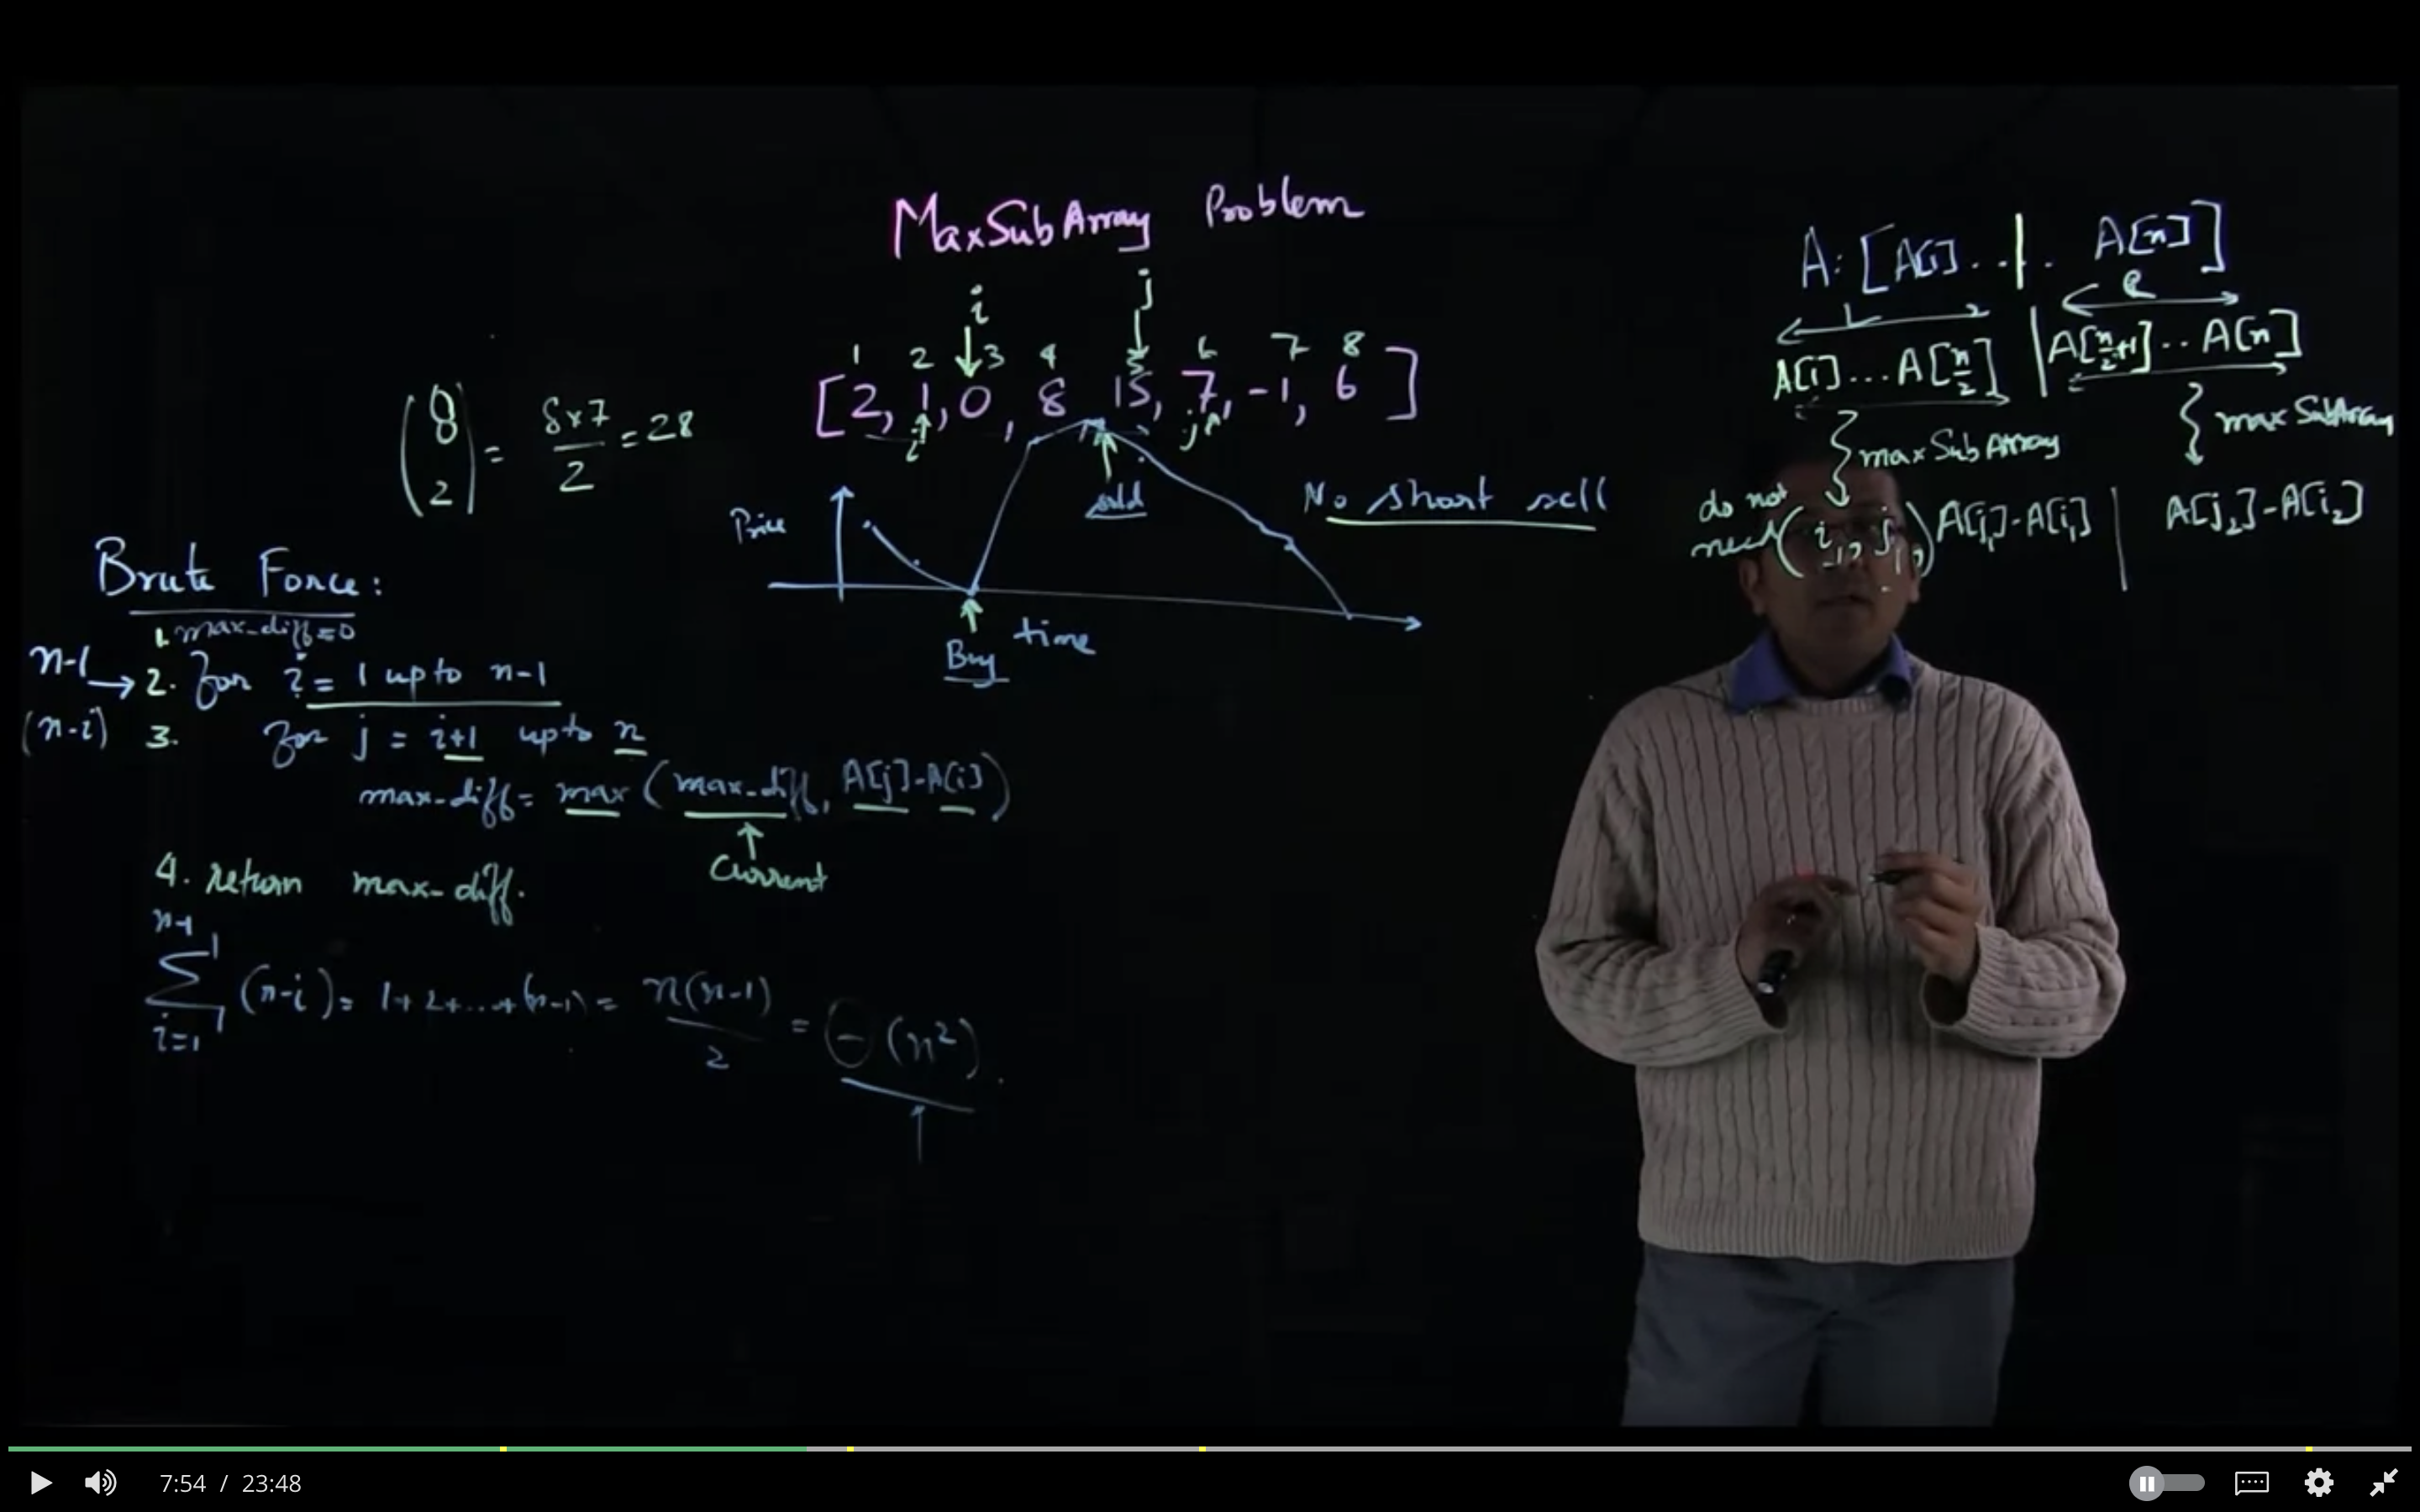 MaxSubArray Problem
i j
1 2 3 4 5 6 7 8
[2, 1, 0, 8 15, 7, -1, 6]
i j
(8 2) = 8x7/2 = 28
Price
sold
No short sell
Buy
time
Brute Force:
1. max_diff=0
n-1 → 2. for i = 1 upto n-1
(n-i) 3. for j = i+1 upto n
max-diff = max (max-diff, A[j]-A[i])
↑
Current
4. return max-diff.
n-1
∑ (n-i) = 1+2+...+(n-1) = n(n-1)/2 = Θ(n²).
i=1
A: [A[1]...|. A[n]]
L R
A[1]...A[n/2] | A[n/2+1]..A[n]
maxSubArray maxSubArray
do not
need (i₁, j₁,) A[j₁]-A[i₁] | A[j₂]-A[i₂]
7:54 / 23:48